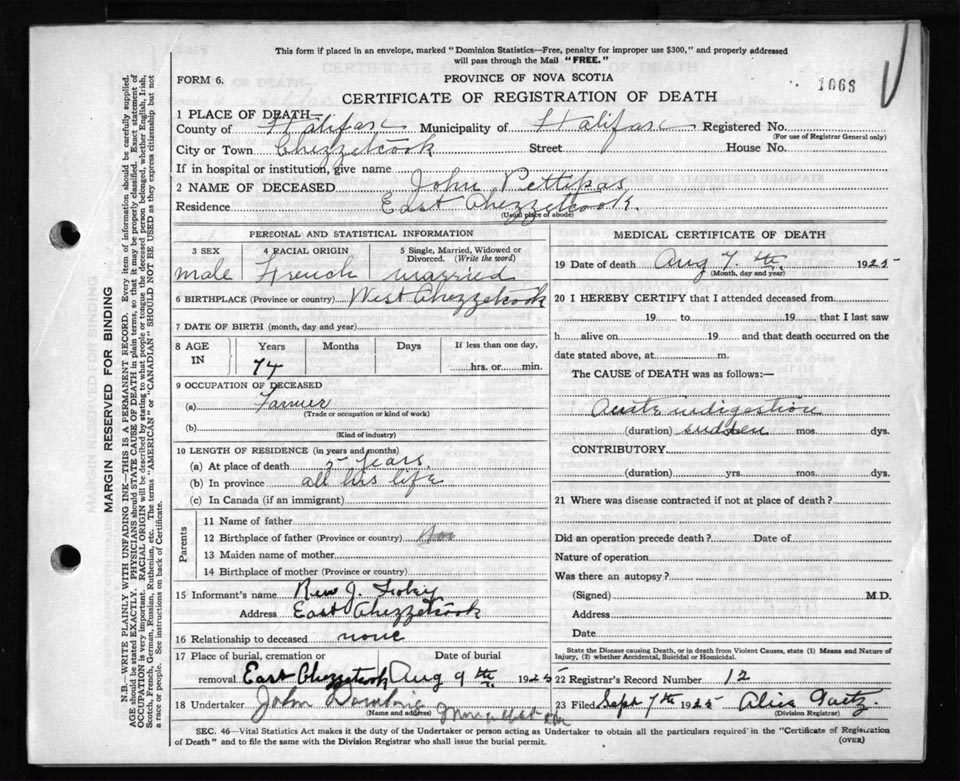 This form if placed in an envelope, marked "Dominion Statistics—Free, penalty for improper use $300," and properly addressed
will pass through the Mail "FREE."
FORM 6.
PROVINCE OF NOVA SCOTIA
1068
CERTIFICATE OF REGISTRATION OF DEATH
1 PLACE OF DEATH—
County of Halifax Municipality of Halifax Registered No.
(For use of Registrar General only)
City or Town Chezzetcook Street House No.
If in hospital or institution, give name
2 NAME OF DECEASED John Pettipas
Residence East Chezzetcook.
(Usual place of abode)
PERSONAL AND STATISTICAL INFORMATION
3 SEX 4 RACIAL ORIGIN 5 Single, Married, Widowed or
Divorced. (Write the word)
male French married
6 BIRTHPLACE (Province or country) West Chezzetcook
7 DATE OF BIRTH (month, day and year)
8 AGE Years Months Days If less than one day,
IN 74 hrs. or min.
9 OCCUPATION OF DECEASED
(a) Farmer
(Trade or occupation or kind of work)
(b)
(Kind of industry)
10 LENGTH OF RESIDENCE (in years and months)
(a) At place of death 5 years.
(b) In province all his life
(c) In Canada (if an immigrant)
Parents
11 Name of father
12 Birthplace of father (Province or country)
13 Maiden name of mother
14 Birthplace of mother (Province or country)
15 Informant's name Rev J.
Address East Chezzetcook
16 Relationship to deceased none
17 Place of burial, cremation or Date of burial
removal East Chezzetcook Aug 9 th. 1925
18 Undertaker John
(Name and address)
MEDICAL CERTIFICATE OF DEATH
19 Date of death Aug 7. th. 1925
(Month, day and year)
20 I HEREBY CERTIFY that I attended deceased from
19 to 19 that I last saw
h alive on 19 and that death occurred on the
date stated above, at m.
The CAUSE of DEATH was as follows:—
Acute indigestion
(duration) sudden mos. dys.
CONTRIBUTORY.
(duration) yrs. mos. dys.
21 Where was disease contracted if not at place of death?
Did an operation precede death? Date of
Nature of operation
Was there an autopsy?
(Signed) M.D.
Address
Date
State the Disease causing Death, or in death from Violent Causes, state (1) Means and Nature of
Injury, (2) whether Accidental, Suicidal or Homicidal.
22 Registrar's Record Number 12
23 Filed Sept 7th 1925 Alice Gaetz.
(Division Registrar)
SEC. 46—Vital Statistics Act makes it the duty of the Undertaker or person acting as Undertaker to obtain all the particulars required in the "Certificate of Registration
of Death" and to file the same with the Division Registrar who shall issue the burial permit.
(OVER)
MARGIN RESERVED FOR BINDING
N.B.—WRITE PLAINLY WITH UNFADING INK—THIS IS A PERMANENT RECORD. Every item of information should be carefully supplied.
AGE should be stated EXACTLY. PHYSICIANS should STATE CAUSE OF DEATH in plain terms, so that it may be properly classified. Exact statement of
OCCUPATION is very important. RACIAL ORIGIN will be described by stating to what people or tongue the deceased person belonged, whether English, Irish,
Scotch, French, German, Russian, Ruthenian, etc. The terms "AMERICAN" or "CANADIAN" SHOULD NOT BE USED as they express citizenship but not
a race or people. See instructions on back of Certificate.